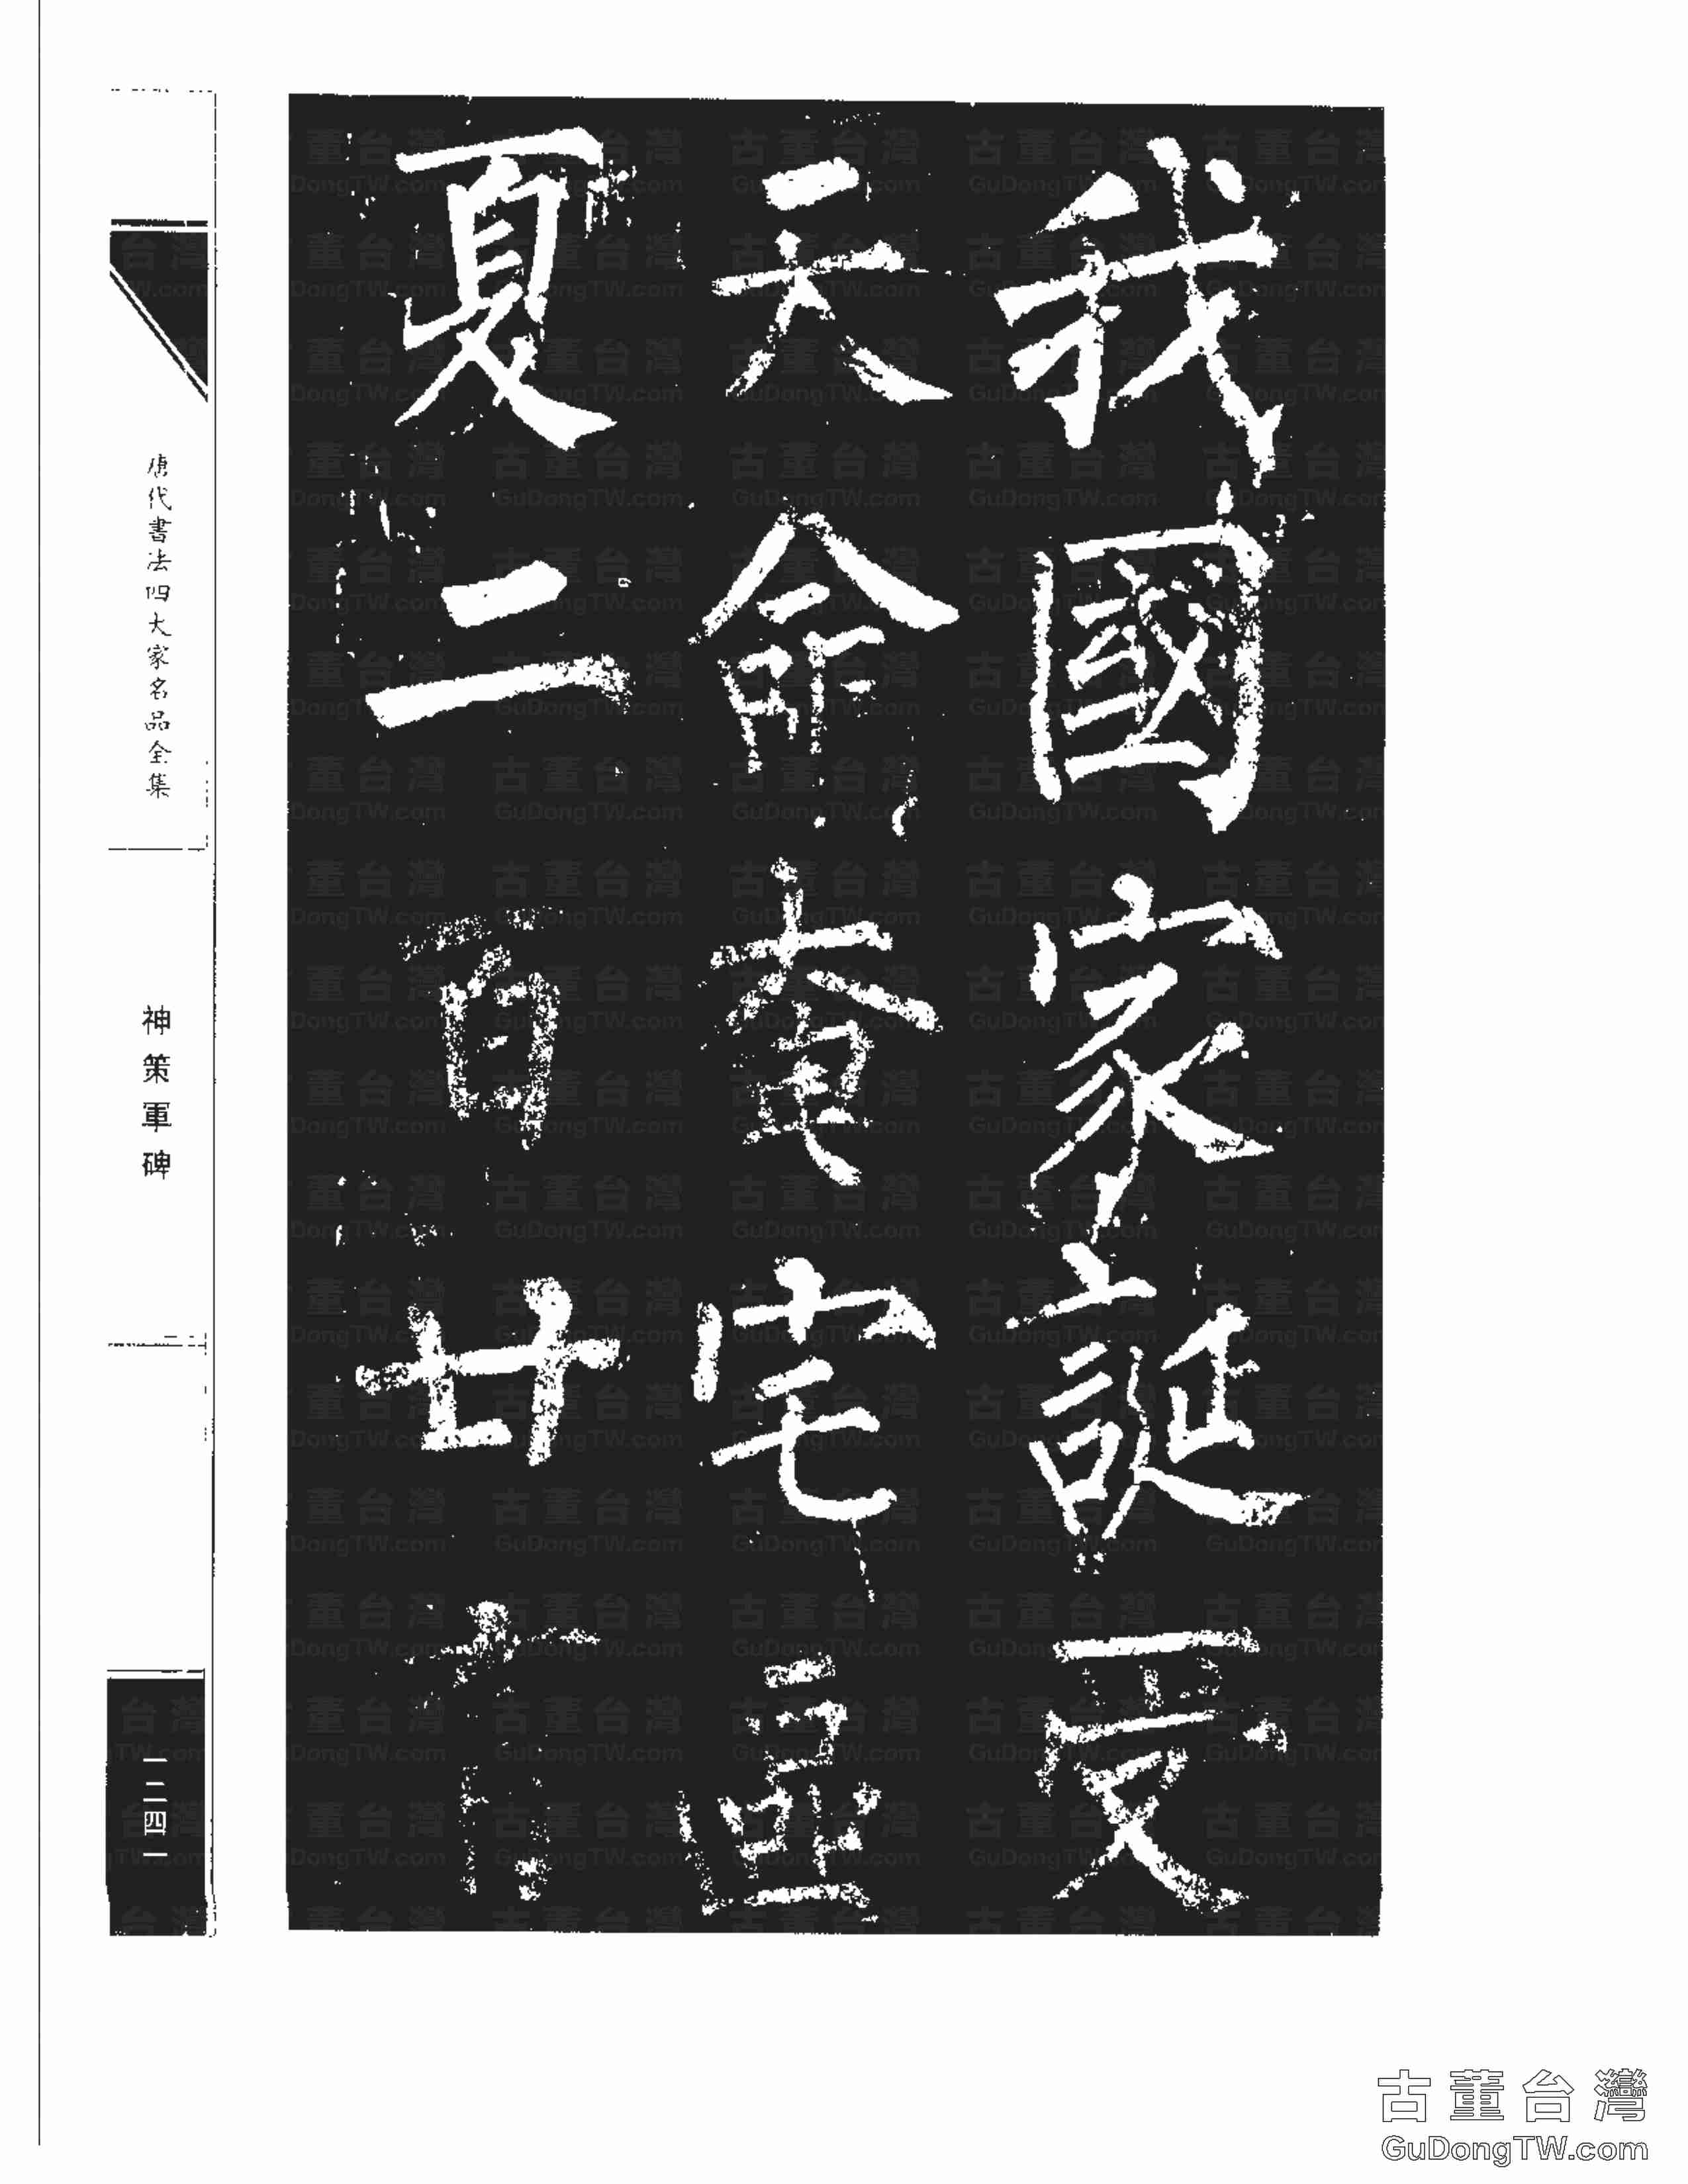 我國家誕受
天命奄宅區
夏二百廿有
唐代書法四大家名品全集
神策軍碑
一二四一
古董台灣
GuDongTW.com